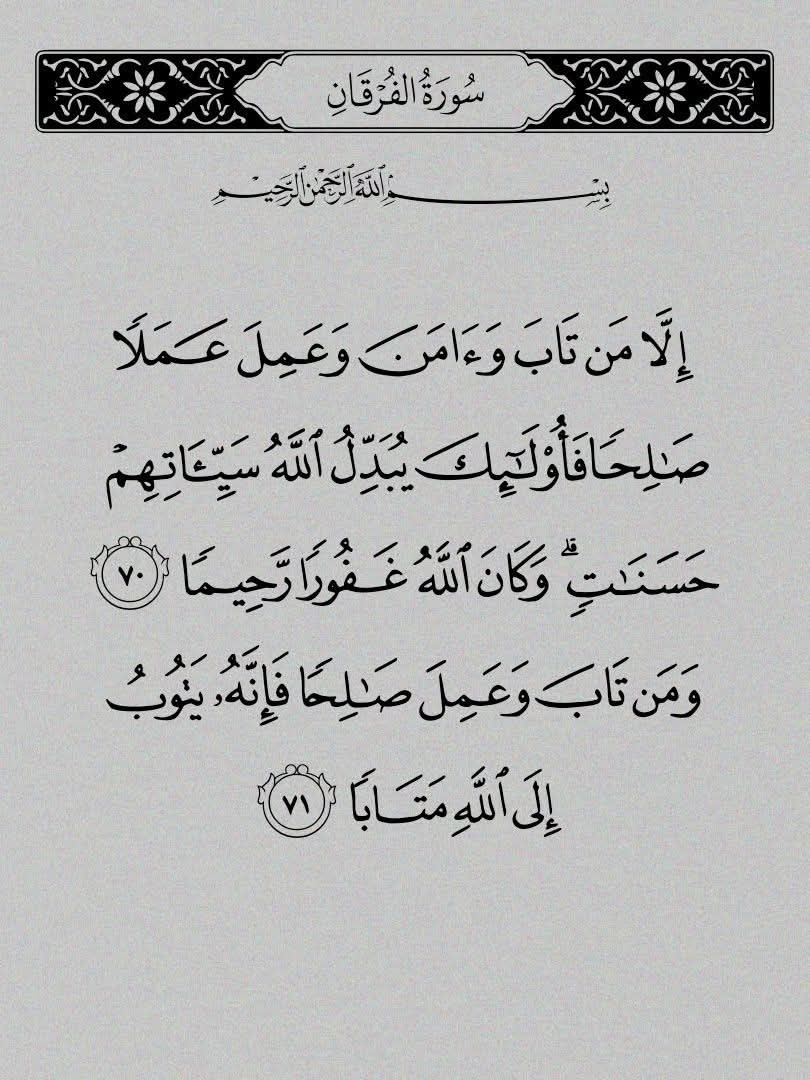 سُورَةُ الفُرْقَانِ
بِسْمِ ٱللَّهِ ٱلرَّحْمَٰنِ ٱلرَّحِيمِ
إِلَّا مَن تَابَ وَءَامَنَ وَعَمِلَ عَمَلٗا
صَٰلِحٗا فَأُوْلَٰٓئِكَ يُبَدِّلُ ٱللَّهُ سَيِّـَٔاتِهِمۡ
حَسَنَٰتٖۗ وَكَانَ ٱللَّهُ غَفُورٗا رَّحِيمٗا ٧٠
وَمَن تَابَ وَعَمِلَ صَٰلِحٗا فَإِنَّهُۥ يَتُوبُ
إِلَى ٱللَّهِ مَتَابٗا ٧١